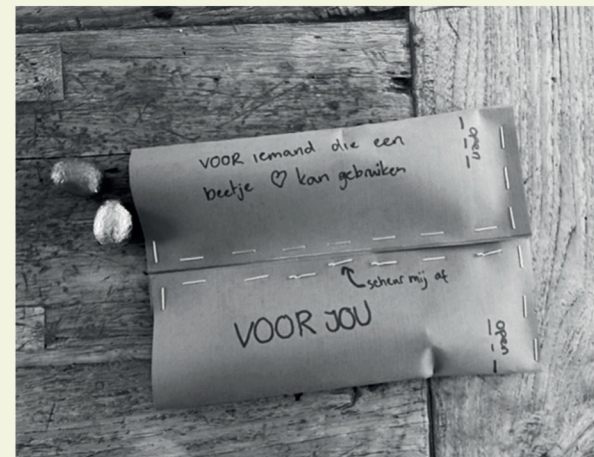 VOOR iemand die een
beetje ♡ kan gebruiken
open
scheur mij af
VOOR JOU
open